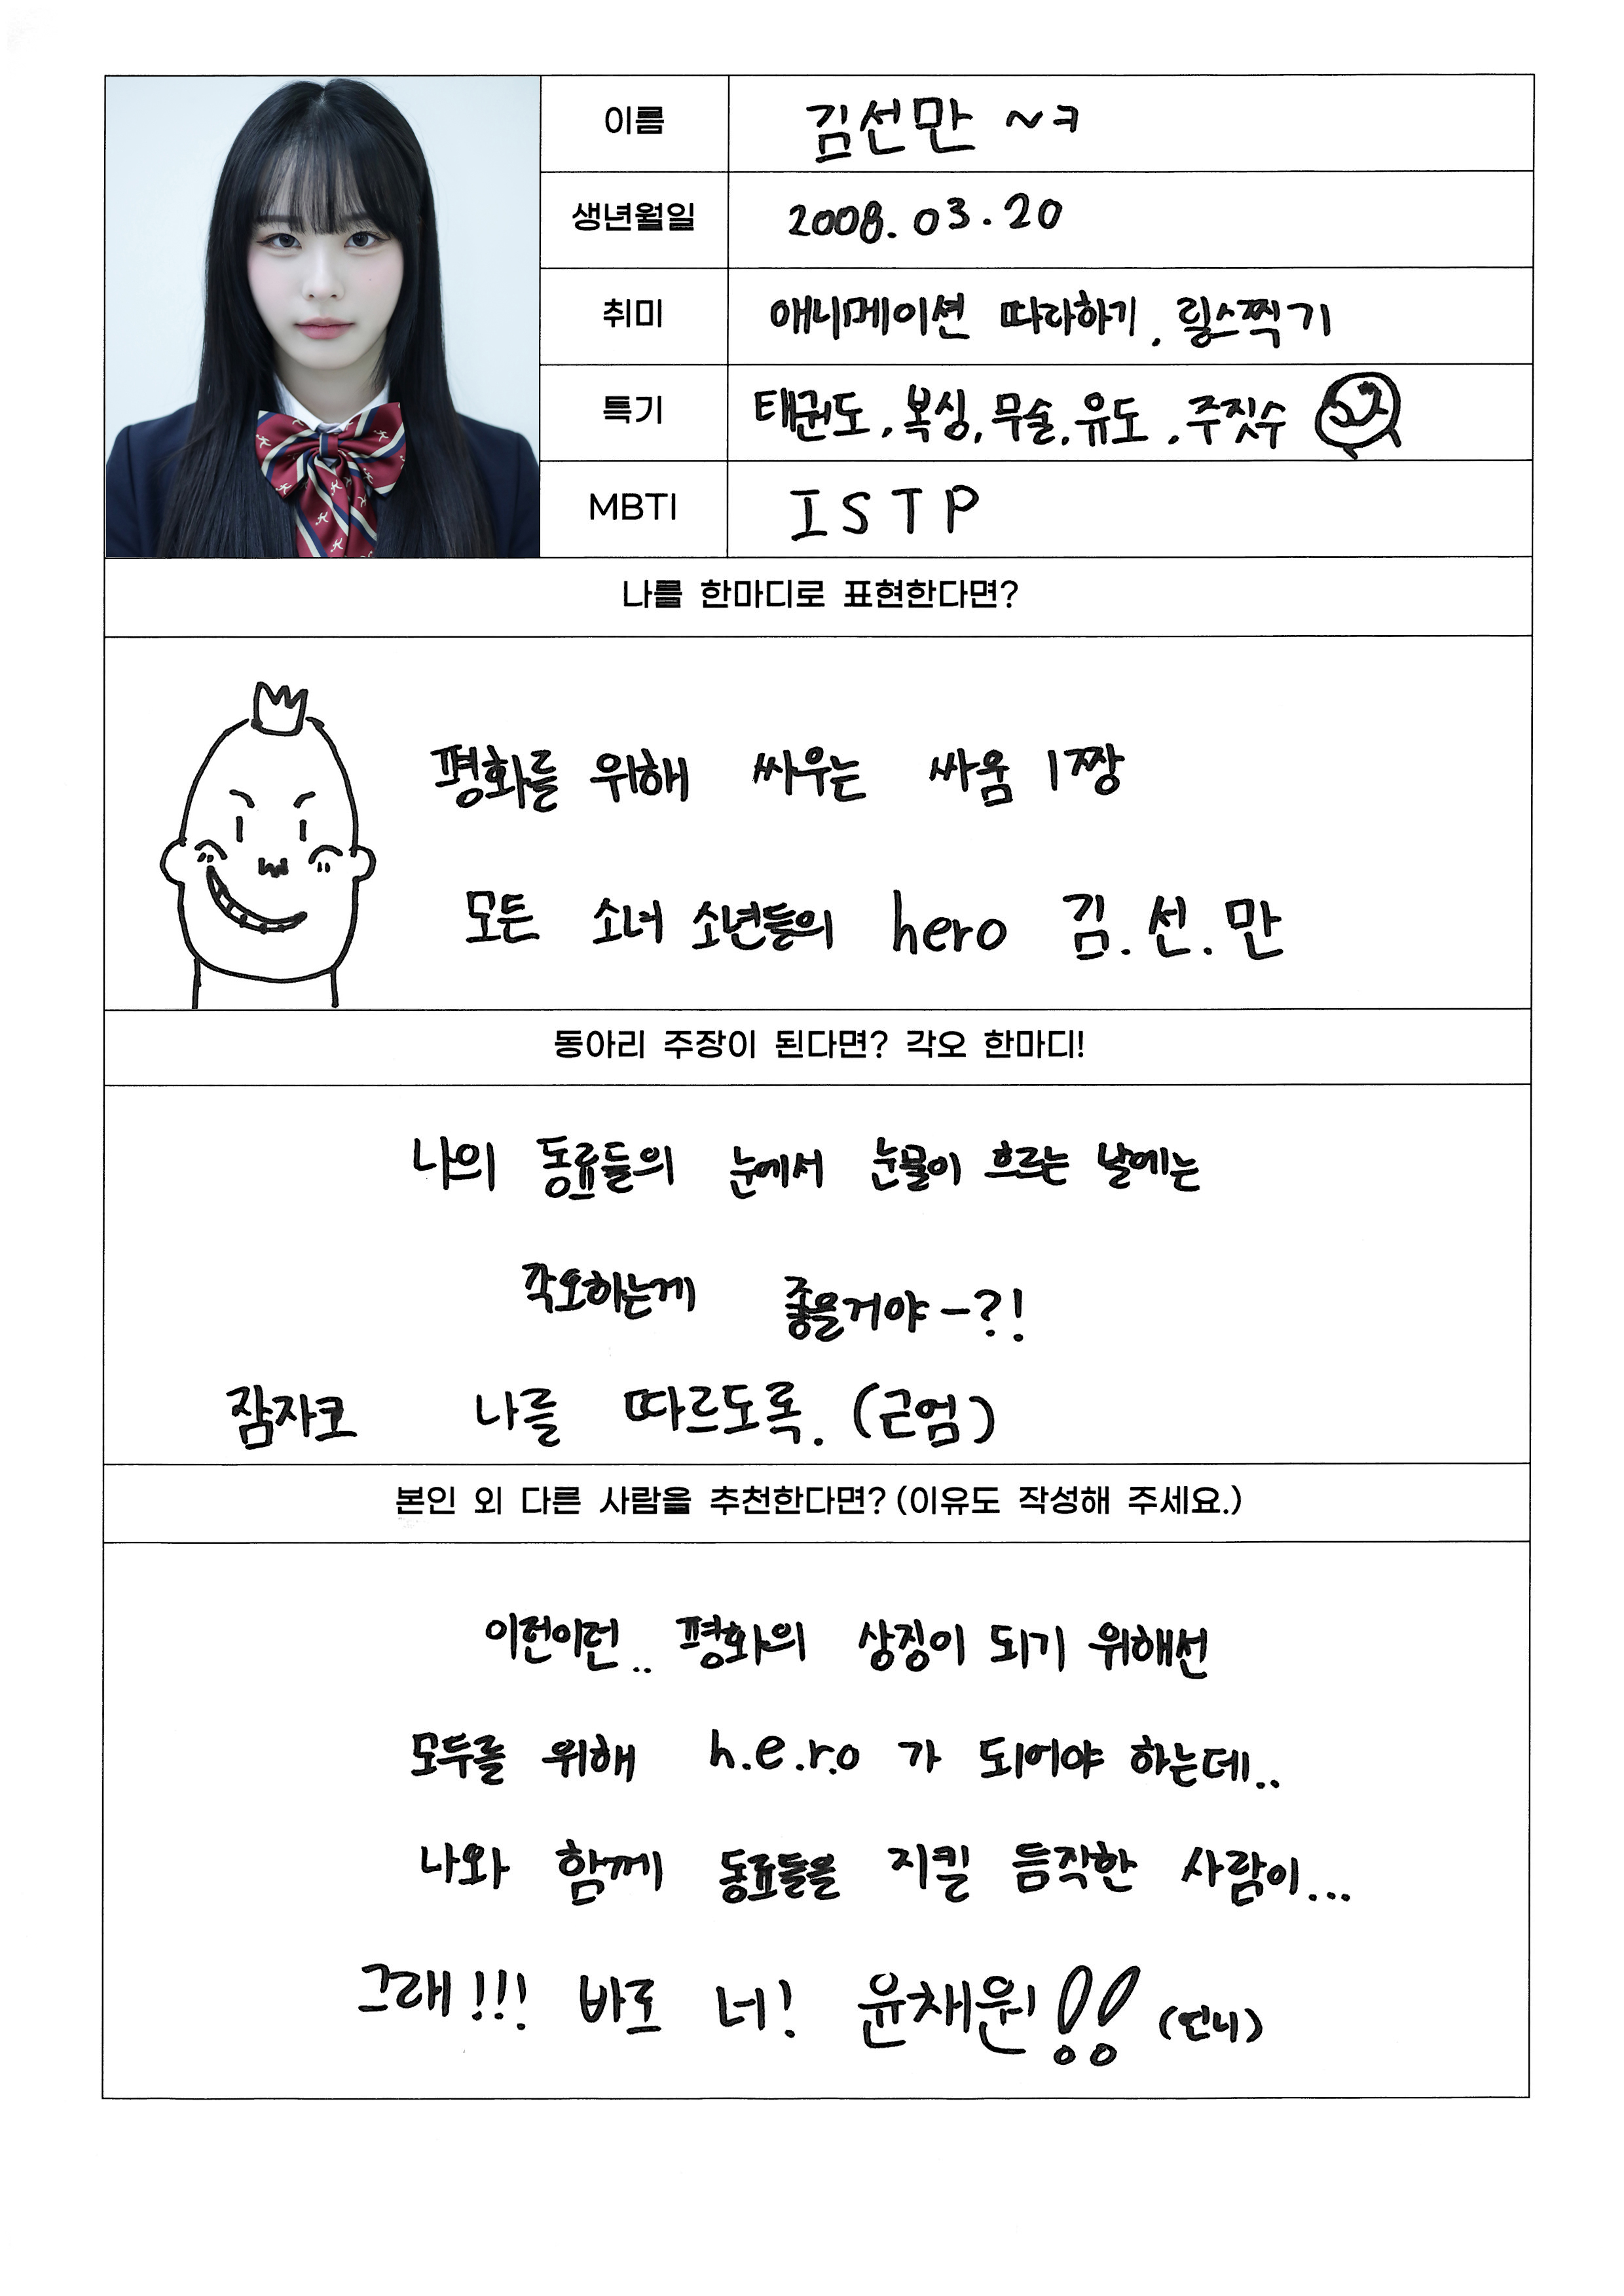 이름 김선만 ~ㅋ
생년월일 2008.03.20
취미 애니메이션 따라하기, 릴스찍기
특기 태권도, 복싱, 무술, 유도, 주짓수
MBTI ISTP
나를 한마디로 표현한다면?
평화를 위해 싸우는 싸움 1짱
모든 소녀 소년들의 hero 김.선.만
동아리 주장이 된다면? 각오 한마디!
나의 동료들의 눈에서 눈물이 흐르는 날에는
각오하는게 좋을거야-?!
잠자코 나를 따르도록. (근엄)
본인 외 다른 사람을 추천한다면? (이유도 작성해 주세요.)
이런이런.. 평화의 상징이 되기 위해선
모두를 위해 h.e.r.o 가 되어야 하는데..
나와 함께 동료들을 지킬 듬작한 사람이...
그래!!! 바로 너! 윤채원!! (언니)